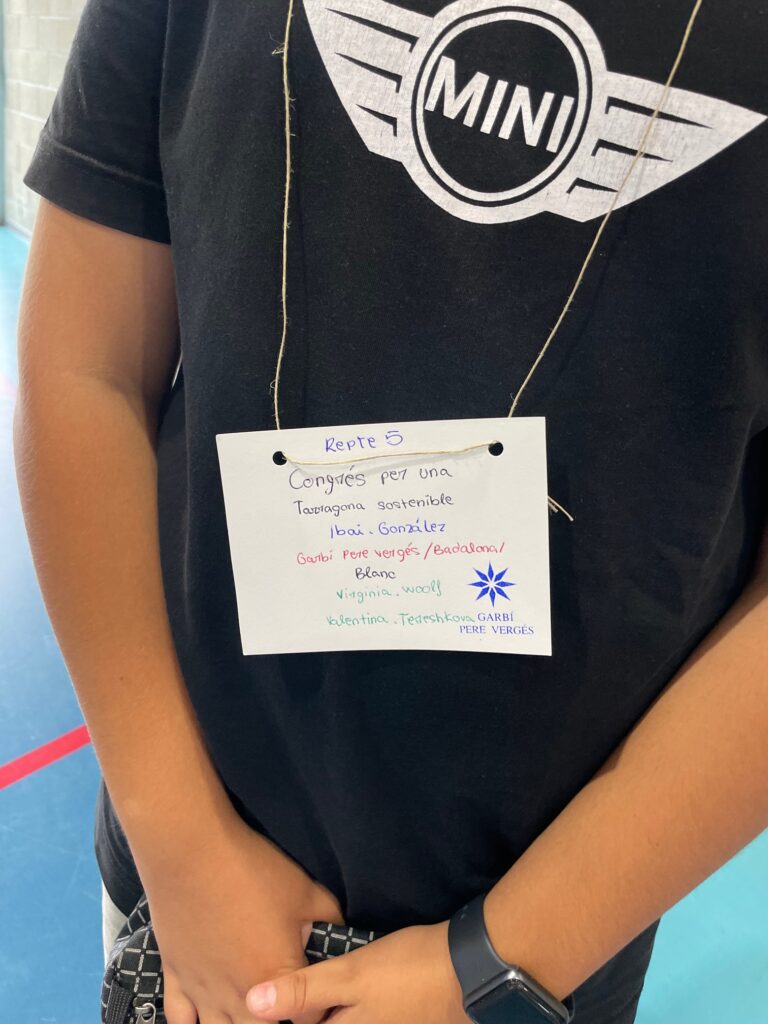 MINI
Repte 5
Congrés per una
Tarragona sostenible
Ibai. González
Garbí Pere vergés/Badalona/
Blanc
Virginia. Woolf
Valentina. Tereshkova
GARBÍ
PERE VERGÉS